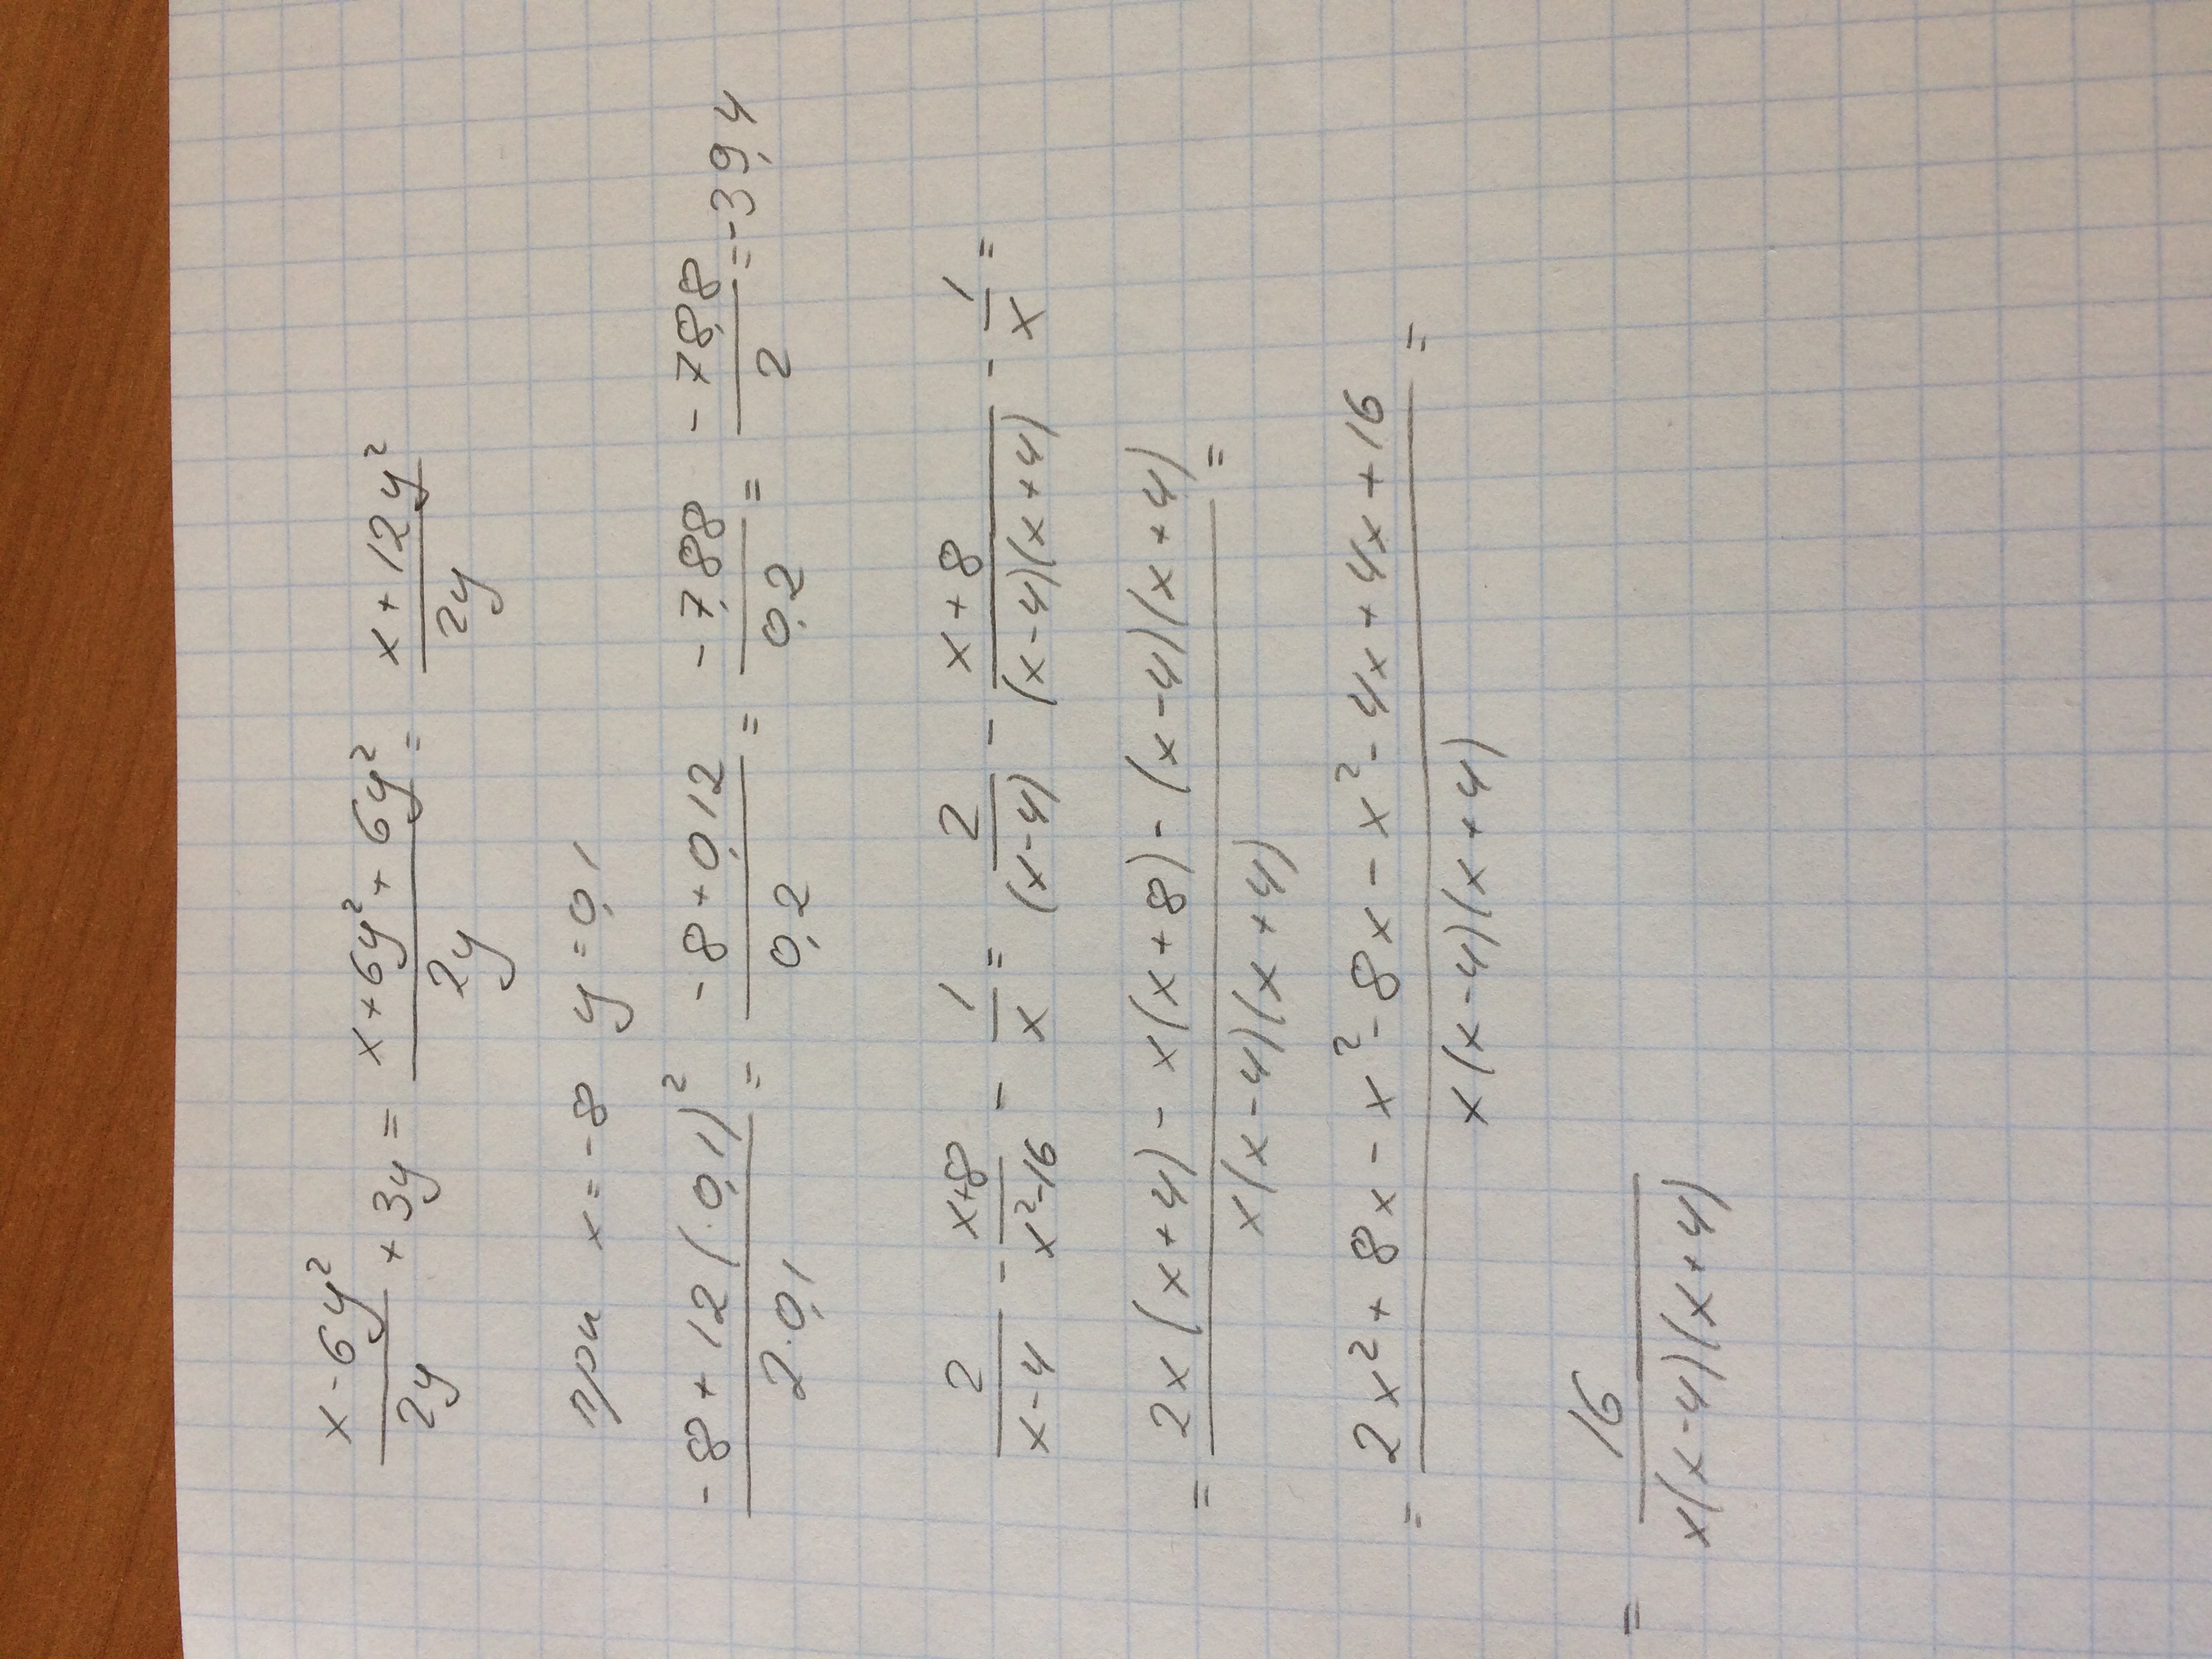 x-6y²/2y + 3y = x+6y²+6y²/2y = x+12y²/2y
при x=-8 y=0,1
-8+12(·0,1)²/2·0,1 = -8+0,12/0,2 = -7,88/0,2 = -78,8/2 = -39,4
2/x-4 - x+8/x²-16 - 1/x = 2/(x-4) - x+8/(x-4)(x+4) - 1/x =
= 2x(x+4) - x(x+8) - (x-4)(x+4)/x(x-4)(x+4) =
= 2x²+8x-x²-8x-x²-4x+4x+16/x(x-4)(x+4) =
= 16/x(x-4)(x+4)